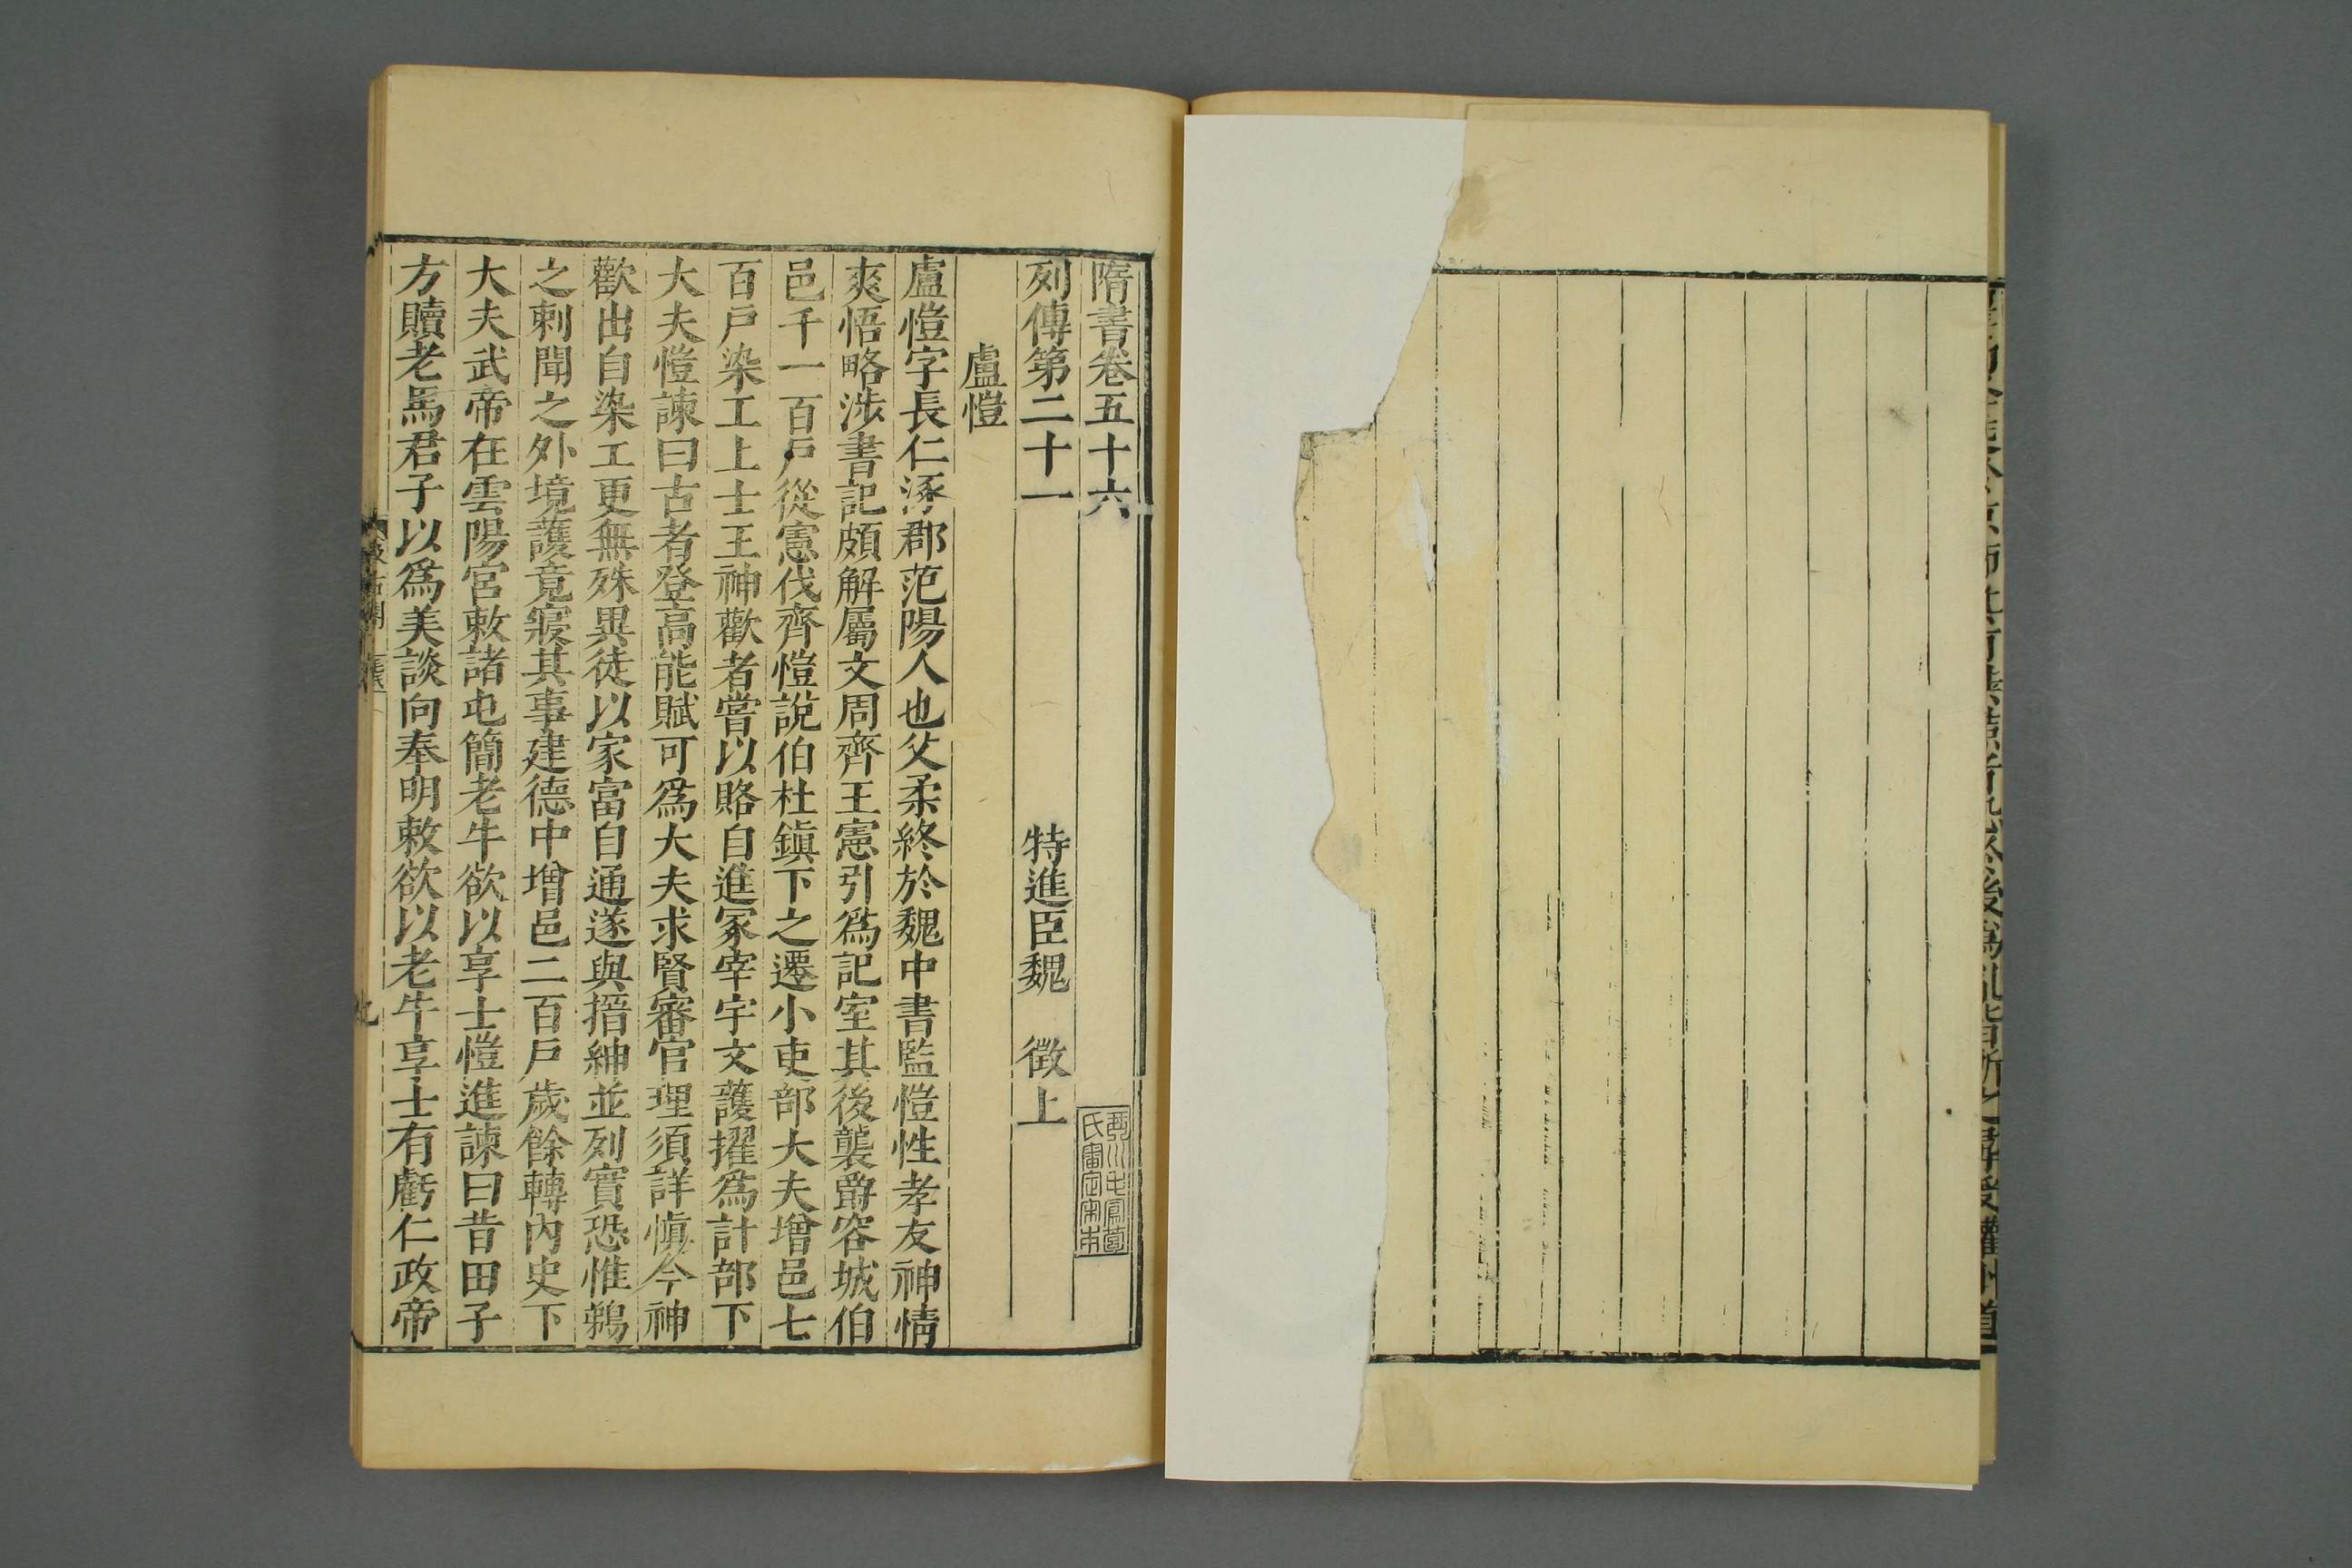 隋書卷五十六
琴川毛鳳苞
氏審定宋本
列傳第二十一 特進臣魏 徵上
盧愷
盧愷字長仁涿郡范陽人也父柔終於魏中書監愷性孝友神情
爽悟略涉書記頗解屬文周齊王憲引爲記室其後襲爵容城伯
邑千一百戶從憲伐齊愷說伯杜鎭下之遷小吏部大夫增邑七
百戶染工上士王神歡者嘗以賂自進冢宰宇文護擢爲計部下
大夫愷諫曰古者登高能賦可爲大夫求賢審官理須詳愼今神
歡出自染工更無殊異徒以家富自通遂與搢紳並列實恐惟鵜
之刺聞之外境護竟寢其事建德中增邑二百戶歲餘轉內史下
大夫武帝在雲陽宮敕諸屯簡老牛欲以享士愷進諫曰昔田子
方贖老馬君子以爲美談向奉明敕欲以老牛享士有虧仁政帝